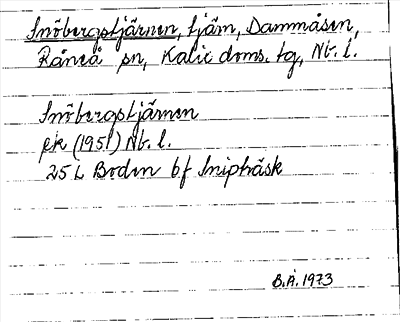 Snöbergstjärnen, tjärn, Dammåsen,
Råneå sn, Kalix doms. tg, Nb. l.
Snöbergstjärnen
ek (1951) Nb. l.
25 L Boden bf Sniptråsk
B.Å. 1973